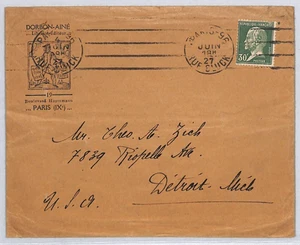 DORBON-AINÉ
19
Boulevard Haussmann
PARIS (IXᵉ)
JUIN
27
RUE GLUCK
30ᶜ
Mr. Theo. A. Zich
7839 Riopelle Ave.
Detroit - Mich
U.S.A